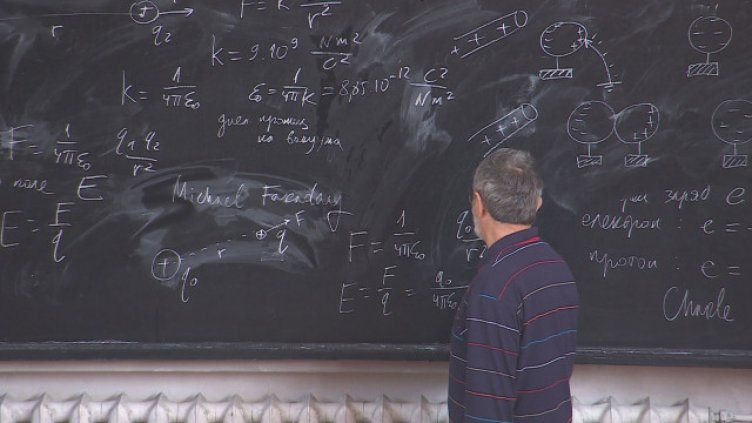 r q₂ F = k / r²
k = 9.10⁹ Nm² / C²
k = 1 / 4πε₀ ε₀ = 1 / 4πk = 8,85.10⁻¹² C² / Nm²
на вакуума
F = 1 / 4πε₀ q₁ q₂ / r²
поле E
Michael Faraday
E = F / q
r q F
q₀
F = 1 / 4πε₀ q₀ / r²
E = F / q = q₀ / 4πε₀
заряд e
електрон : e =
протон : e =
Charle